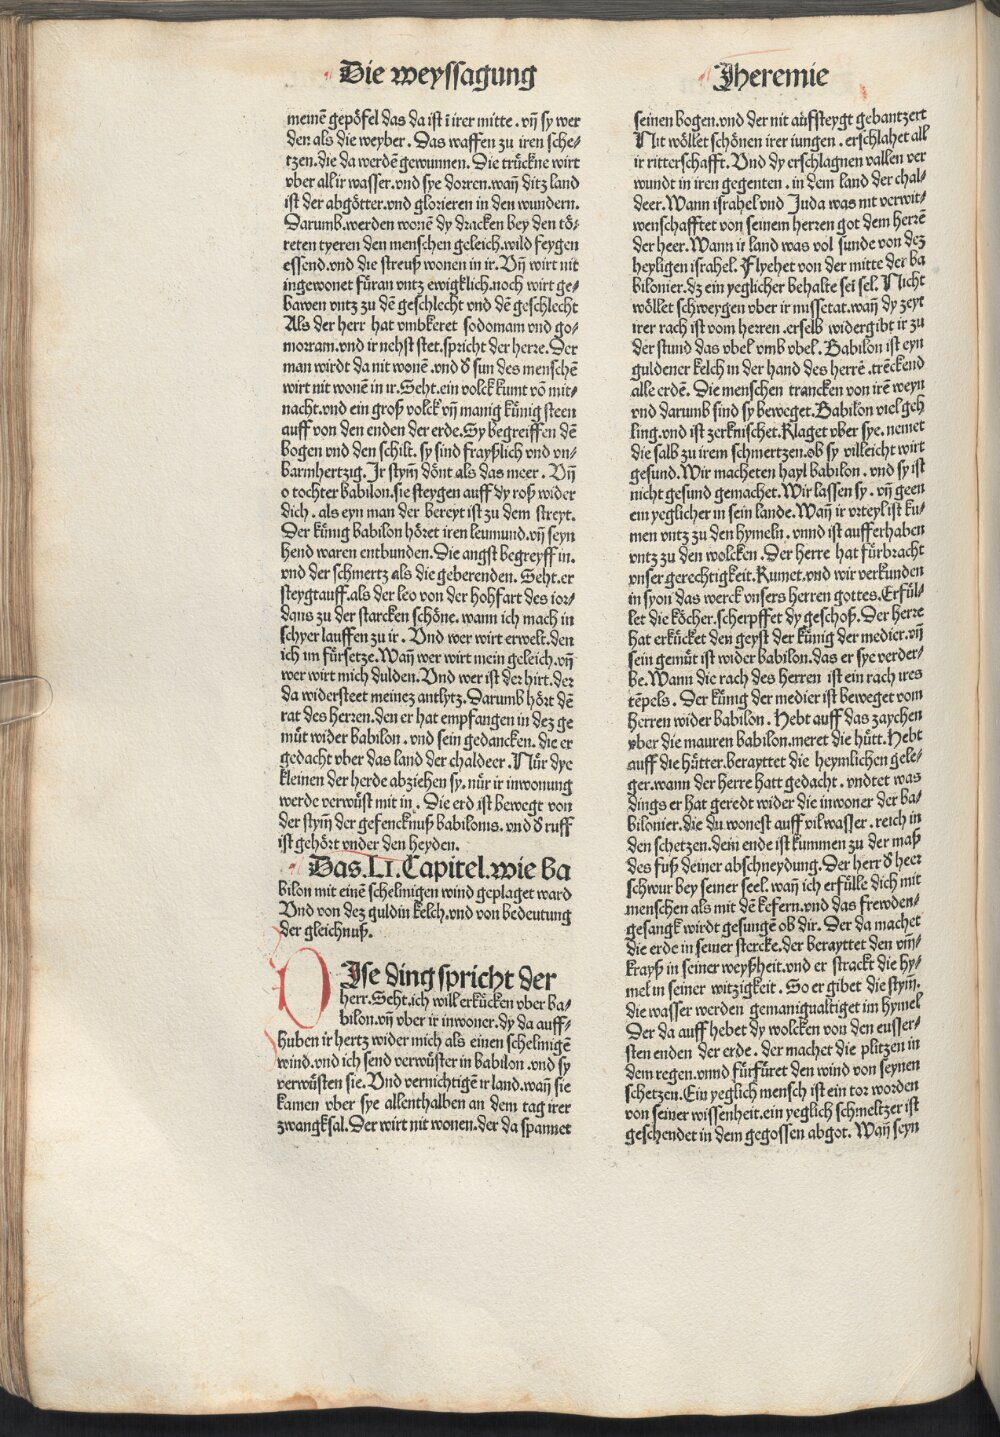 Die weyssagung
Jheremie
meinē gepöfel das da ist ī irer mitte. vñ sy wer
den als die weyber. Das waffen zu iren sche⸗
tzen. die da werdē gewunnen. Die trückne wirt
vber all ir wasser. vnd sye dorren. wañ ditz land
ist der abgötter. vnd glorieren in den wundern.
Darumb. werden wonē dy dracken bey den tö⸗
reten tyeren den menschen geleich. wild feygen
essend. vnd die streuß wonen in ir. Vñ wirt nit
ingewonet füran vntz ewigklich. noch wirt ge⸗
bawen vntz zu dē geschlecht vnd dē geschlecht
Als der herr hat vmbkeret sodomam vnd go⸗
morram. vnd ir nehst stet. spricht der herre. Der
man wirdt da nit wonē. vnd d̕ sun des menschē
wirt nit wonē in ir. Seht. ein volck kumt vō mit⸗
nacht. vnd ein groß volck vñ manig künig steen
auff von den enden der erde. Sy begreiffen dē
bogen vnd den schilt. sy sind frayßlich vnd vn⸗
barmhertzig. Jr stym̄ dönt als das meer. Vñ
o tochter babilon. sie steygen auff dy roß wider
dich. als eyn man der bereyt ist zu dem streyt.
Der künig babilon höret iren leumund. vñ seyn
hend waren entbunden. Die angst begreyff in.
vnd der schmertz als die geberenden. Seht. er
steygt auff. als der leo von der hohfart des ior⸗
dans zu der starcken schöne. wann ich mach in
schyer lauffen zu ir. Vnd wer wirt erwelt. den
ich im fürsetze. Wañ wer wirt mein geleich. vñ
wer wirt mich dulden. Vnd wer ist der hirt. der
da widersteet meinez antlytz. Darumb hört dē
rat des herren. den er hat empfangen in dez ge
müt wider babilon. vnd sein gedancken. die er
gedacht vber das land der chaldeer. Nür dye
kleinen der herde abziehen sy. nür ir inwonung
werde verwüst mit in. Die erd ist bewegt von
der stym̄ der gefencknuß babilonis. vnd d̕ ruff
ist gehört vnder den heyden.
Das. LI. Capitel. wie ba
bilon mit einē schelmigen wind geplaget ward
Vnd von dez guldin kelch. vnd von bedeutung
der gleichnuß.
DJse ding spricht der
herr. Seht. ich will erkücken vber ba⸗
bilon. vñ vber ir inwoner. dy da auff⸗
huben ir hertz wider mich als einen schelmigē
wind. vnd ich send verwüster in babilon. vnd sy
verwüsten sie. Vnd vernichtigē ir land. wañ sie
kamen vber sye allenthalben an dem tag irer
zwangksal. Der wirt nit wonen. der da spannet
seinen bogen. vnd der nit aufsteygt gebantzert
Nit wöllet schönen irer iungen. erschlahet all
ir ritterschafft. Vnd dy erschlagnen vallen ver
wundt in iren gegenten. in dem land der chal⸗
deer. Wann israhel vnd Juda was nit verwit⸗
wenschafftet von seinem herren got dem herrē
der heer. Wann ir land was vol sunde von dez
heyligen israhel. Flyehet von der mitte der ba
bilonier. dz ein yeglicher behalte sei sel. Nicht
wöllet schweygen vber ir missetat. wañ dy zeyt
irer rach ist vom herren. er selb widergibt ir zu
der stund das vbel vmb vbel. Babilon ist eyn
guldener kelch in der hand des herrē. trēckend
alle erdē. Die menschen trancken von irē weyn
vnd darumb sind sy beweget. Babilon viel geh
ling. vnd ist zerknischet. Klaget vber sye. nemet
die salb zu irem schmertzen. ob sy villeicht wirt
gesund. Wir macheten hayl babilon. vnd sy ist
nicht gesund gemachet. Wir lassen sy. vñ geen
ein yeglicher in sein lande. Wañ ir vrteyl ist ku⸗
men vntz zu den hymeln. vnnd ist aufferhaben
vntz zu den wolcken. Der herre hat fürbracht
vnser gerechtigkeit. Kumet. vnd wir verkunden
in syon das werck vnsers herren gottes. Erfül⸗
let die köcher. scherpffet dy geschoß. Der herre
hat erkücket den geyst der künig der medier. vñ
sein gemüt ist wider babilon. das er sye verder⸗
be. Wann die rach des herren ist ein rach ires
tēpels. Der künig der medier ist beweget vom
herren wider babilon. Hebt auff das zaychen
vber die mauren babilon. meret die hütt. Hebt
auff die hütter. berayttet die heymlichen gele⸗
ger. wann der herre hatt gedacht. vnd tet was
dings er hat geredt wider die inwoner der ba⸗
bilonier. die du wonest auff vil wasser. reich in
den schetzen. dein ende ist kummen zu der maß
des fuß deiner abschneydung. Der herr d̕ heer
schwur bey seiner seel. wañ ich erfülle dich mit
menschen als mit dē kefern. vnd das frewden⸗
gesangk wirdt gesungē ob dir. Der da machet
die erde in seiner stercke. der berayttet den vm̄⸗
krayß in seiner weyßheit. vnd er strackt die hy⸗
mel in seiner witzigkeit. So er gibet die stym̄.
die wasser werden gemanigualtiget im hymel
Der da auff hebet dy wolcken von den eusser⸗
sten enden der erde. der machet die plitzen in
dem regen. vnnd fürfüret den wind von seynen
schetzen. Ein yeglich mensch ist ein tor worden
von seiner wissenheit. ein yeglich schmeltzer ist
geschendet in dem gegossen abgot. Wañ seyn